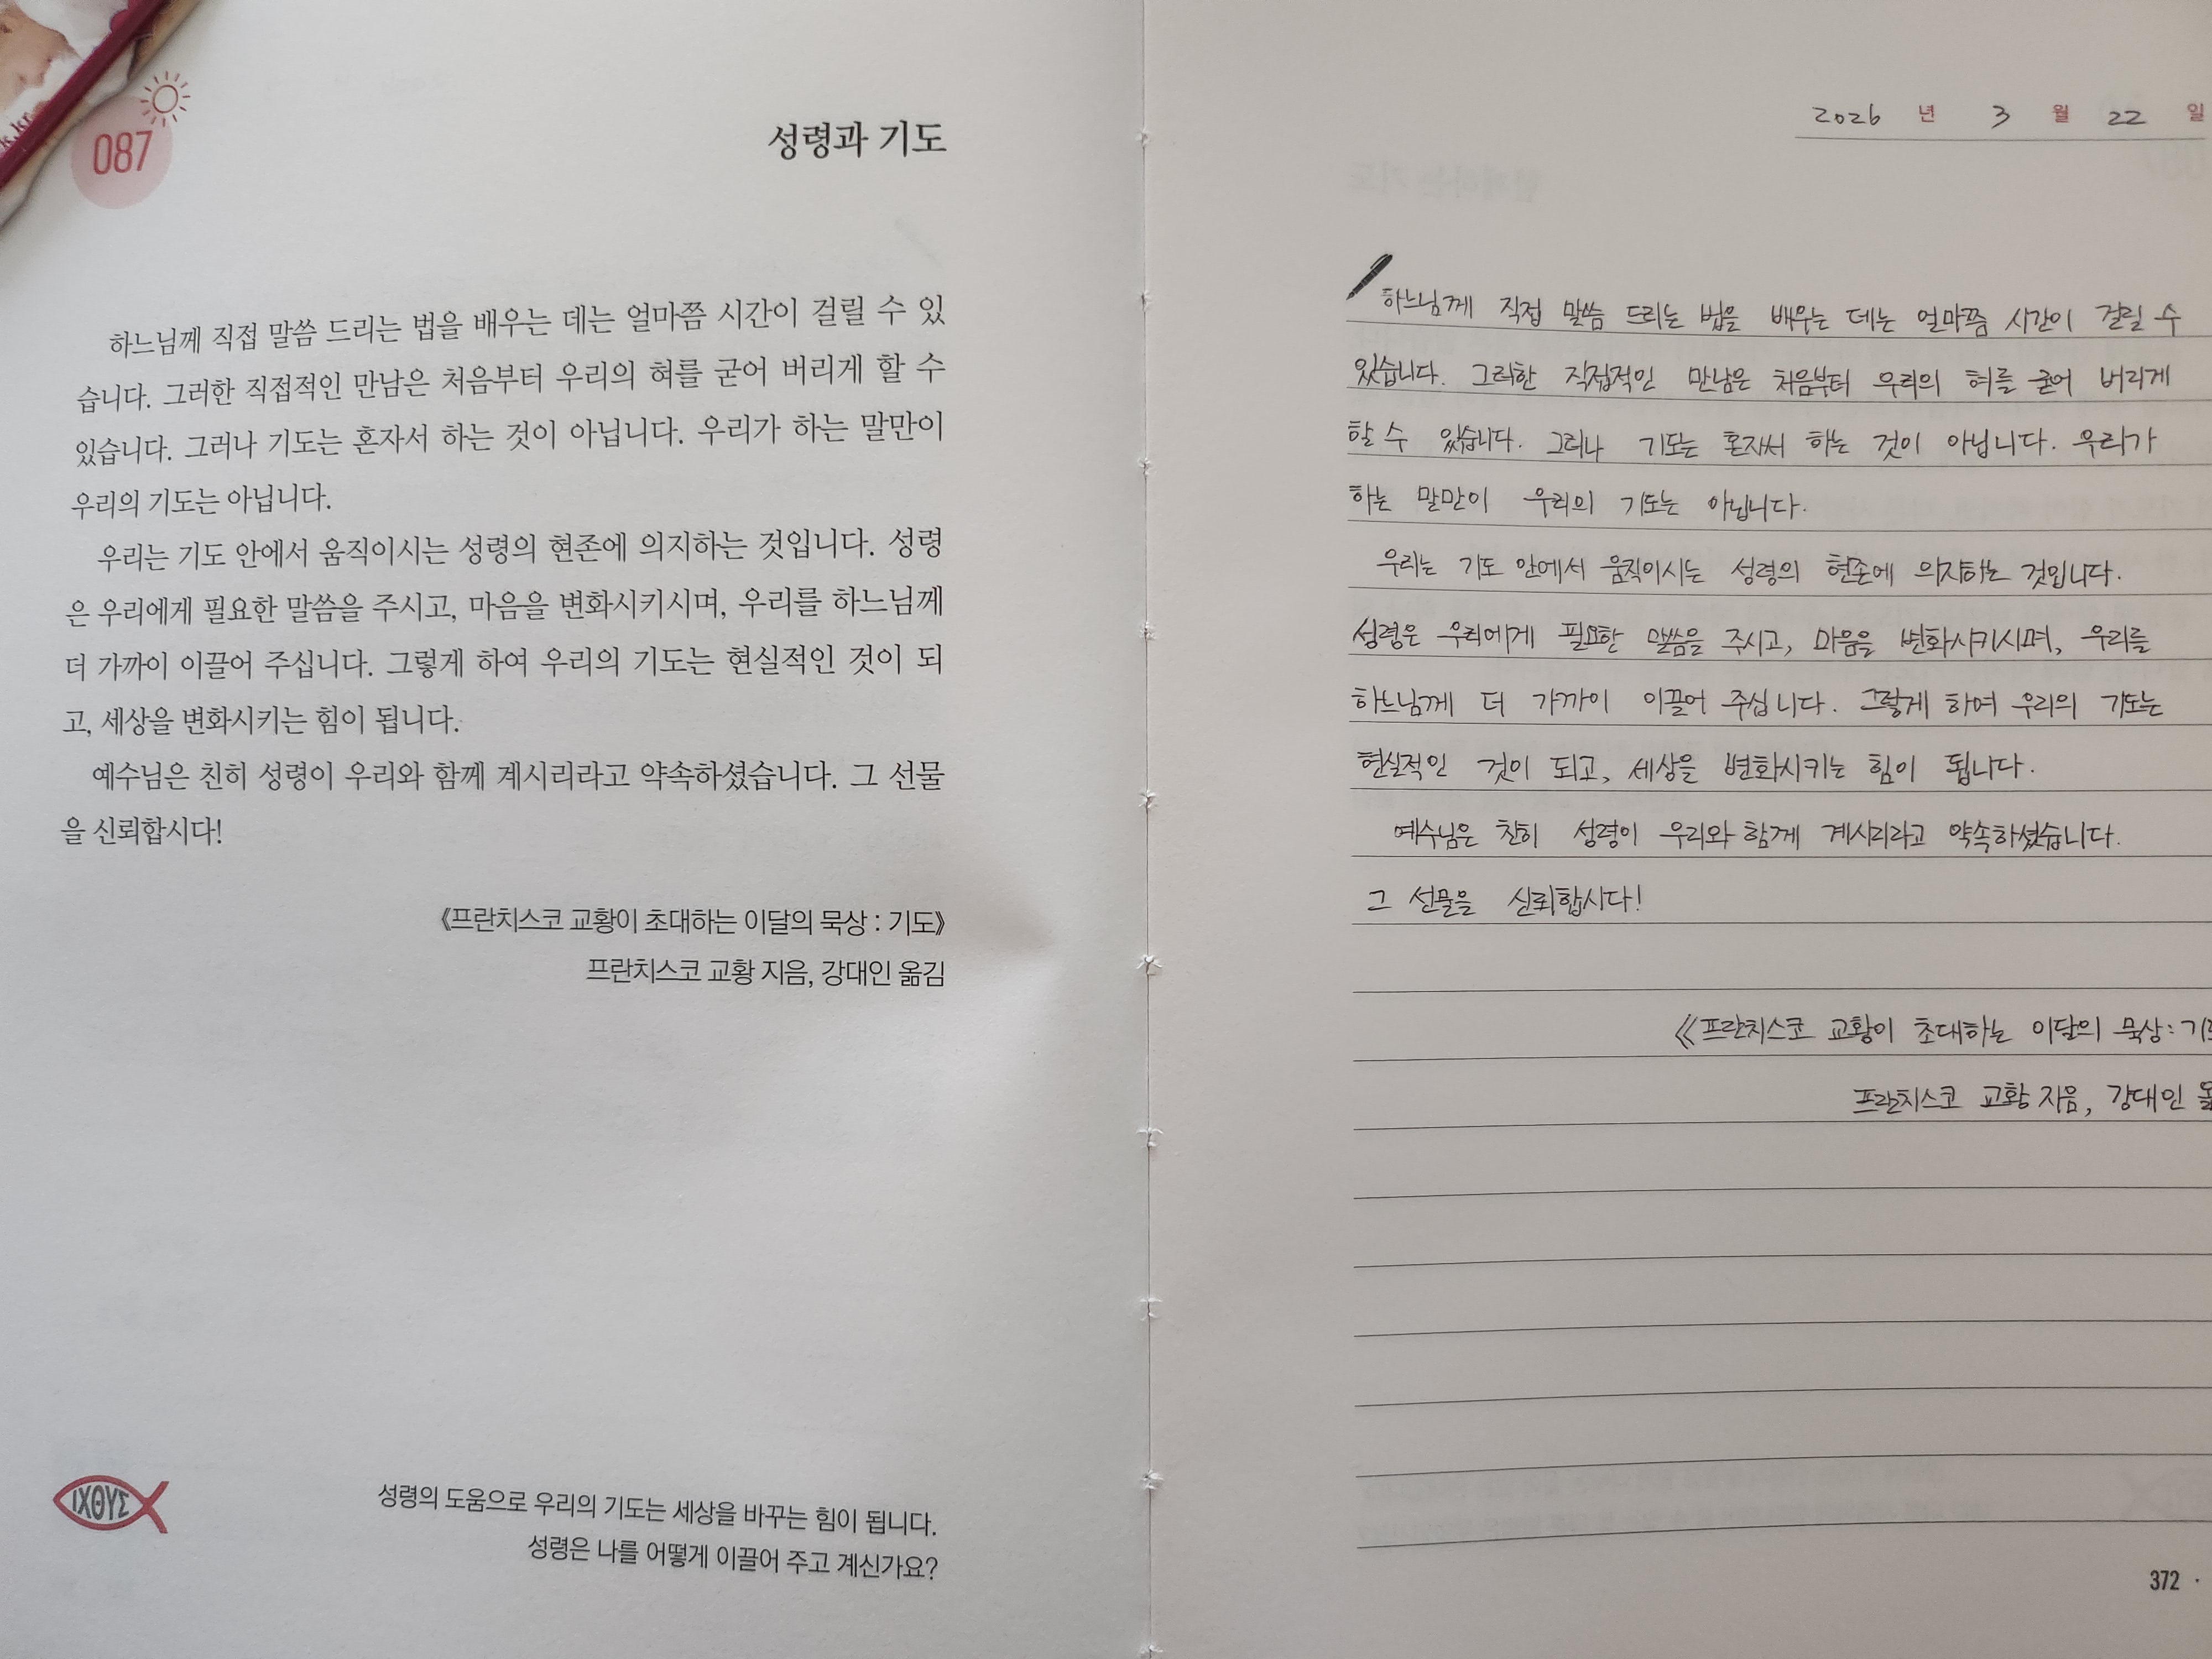 087
성령과 기도
하느님께 직접 말씀 드리는 법을 배우는 데는 얼마쯤 시간이 걸릴 수 있
습니다. 그러한 직접적인 만남은 처음부터 우리의 혀를 굳어 버리게 할 수
있습니다. 그러나 기도는 혼자서 하는 것이 아닙니다. 우리가 하는 말만이
우리의 기도는 아닙니다.
우리는 기도 안에서 움직이시는 성령의 현존에 의지하는 것입니다. 성령
은 우리에게 필요한 말씀을 주시고, 마음을 변화시키시며, 우리를 하느님께
더 가까이 이끌어 주십니다. 그렇게 하여 우리의 기도는 현실적인 것이 되
고, 세상을 변화시키는 힘이 됩니다.
예수님은 친히 성령이 우리와 함께 계시리라고 약속하셨습니다. 그 선물
을 신뢰합시다!
《프란치스코 교황이 초대하는 이달의 묵상 : 기도》
프란치스코 교황 지음, 강대인 옮김
ΙΧΘΥΣ
성령의 도움으로 우리의 기도는 세상을 바꾸는 힘이 됩니다.
성령은 나를 어떻게 이끌어 주고 계신가요?
2026 년 3 월 22 일
하느님께 직접 말씀 드리는 법을 배우는 데는 얼마쯤 시간이 걸릴 수
있습니다. 그러한 직접적인 만남은 처음부터 우리의 혀를 굳어 버리게
할 수 있습니다. 그러나 기도는 혼자서 하는 것이 아닙니다. 우리가
하는 말만이 우리의 기도는 아닙니다.
우리는 기도 안에서 움직이시는 성령의 현존에 의지하는 것입니다.
성령은 우리에게 필요한 말씀을 주시고, 마음을 변화시키시며, 우리를
하느님께 더 가까이 이끌어 주십니다. 그렇게 하여 우리의 기도는
현실적인 것이 되고, 세상을 변화시키는 힘이 됩니다.
예수님은 친히 성령이 우리와 함께 계시리라고 약속하셨습니다.
그 선물을 신뢰합시다!
《프란치스코 교황이 초대하는 이달의 묵상 : 기
프란치스코 교황 지음, 강대인
372 ·